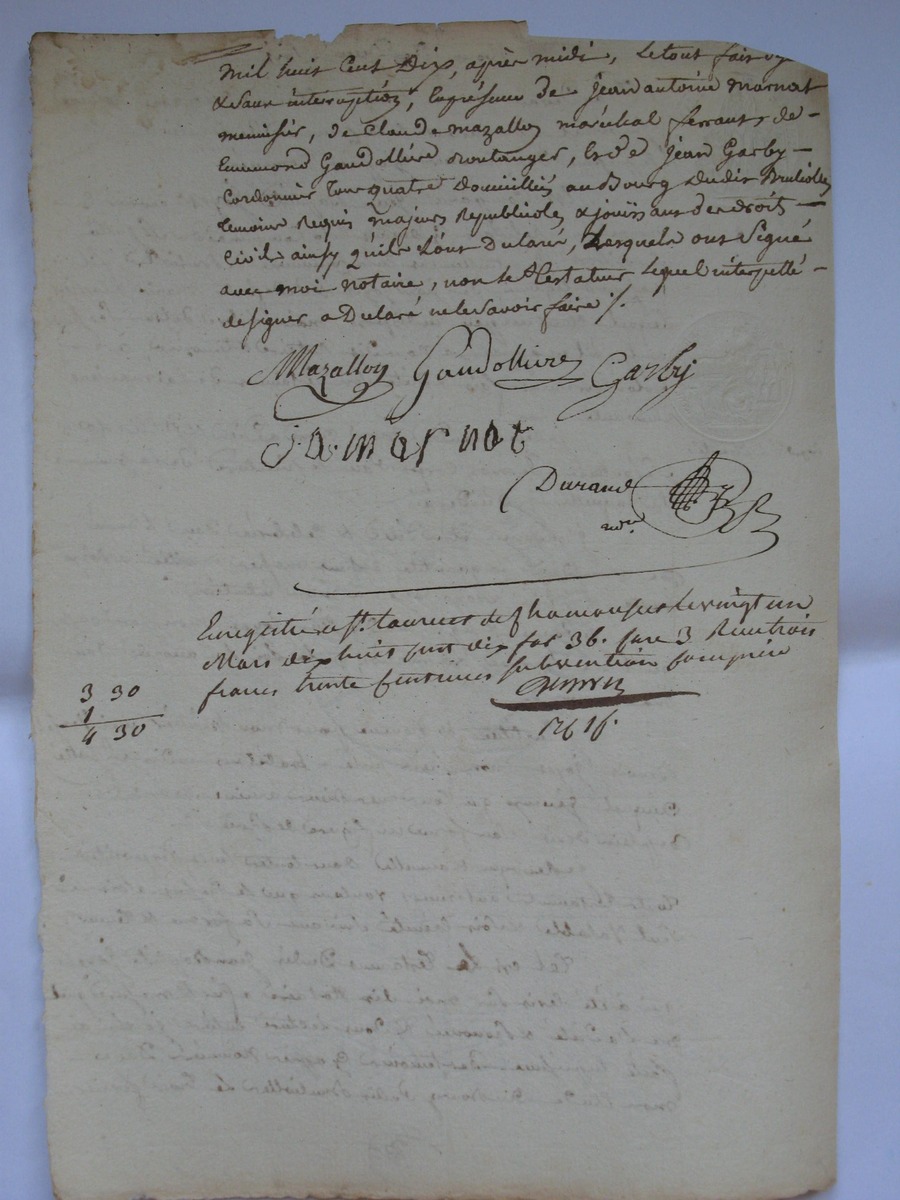 mil huit Cent Dix, après midi, Le tout fait
& sans interruption, En présence de Jean antoine marnat
menuisier, de Claude mazallon maréchal ferrant, de
Emmond Gaudollière Boulanger, Et de Jean Garby
Cordonnier tous quatre Domiciliés au Bourg Dudit Brulioles
temoins Requis majeurs Republicoles & jouissant des droits
Civils ainsy qu'ils L'ont Declaré, Lesquels ont Signé
avec moi notaire, non le testateur Lequel interpellé
de signer a Declaré ne le savoir faire /.
Mazallon Gaudollière Garby
J. a. marnat
Durand
nre
Enregistré a St. Laurent de Chamousset Le vingt un
Mars dix huit cent dix fol 36. case 3 Recu trois
francs trente Centimes subvention comprise
3 30
1
4 30